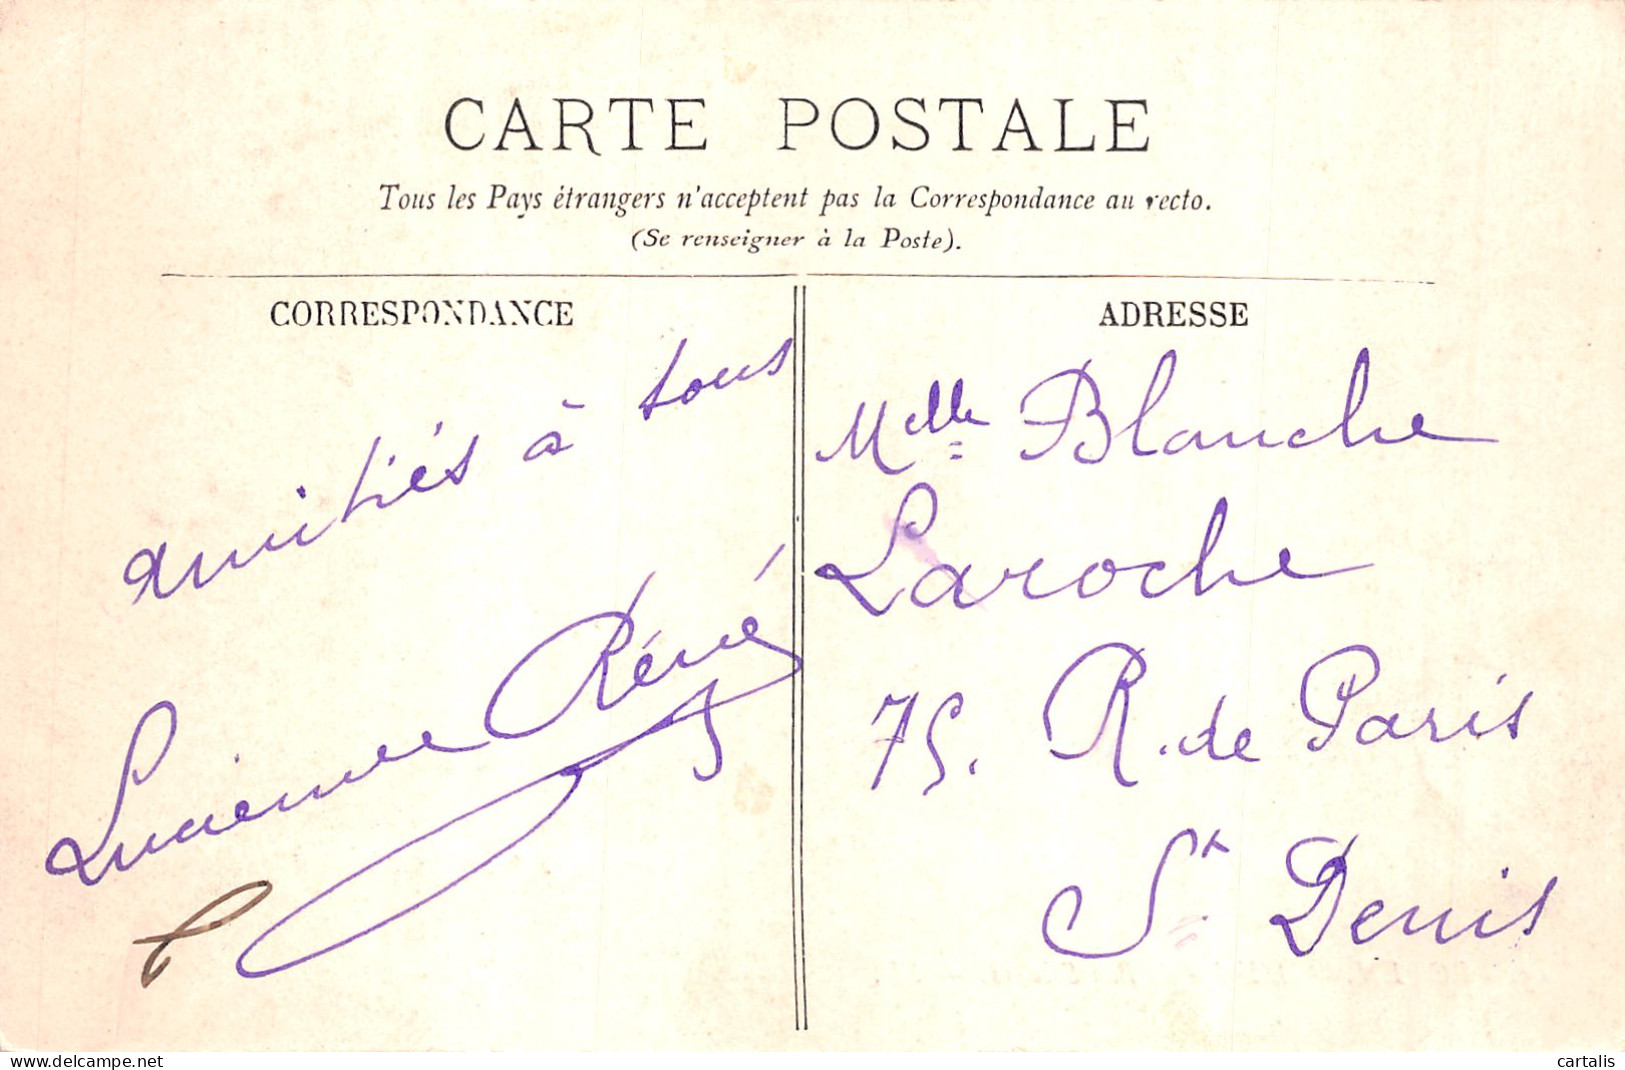 CARTE POSTALE
Tous les Pays étrangers n'acceptent pas la Correspondance au recto.
(Se renseigner à la Poste).
CORRESPONDANCE
amitiés à tous
Lucienne Réné
ADRESSE
Melle Blanche
Laroche
75. R. de Paris
St Denis
www.delcampe.net
cartalis